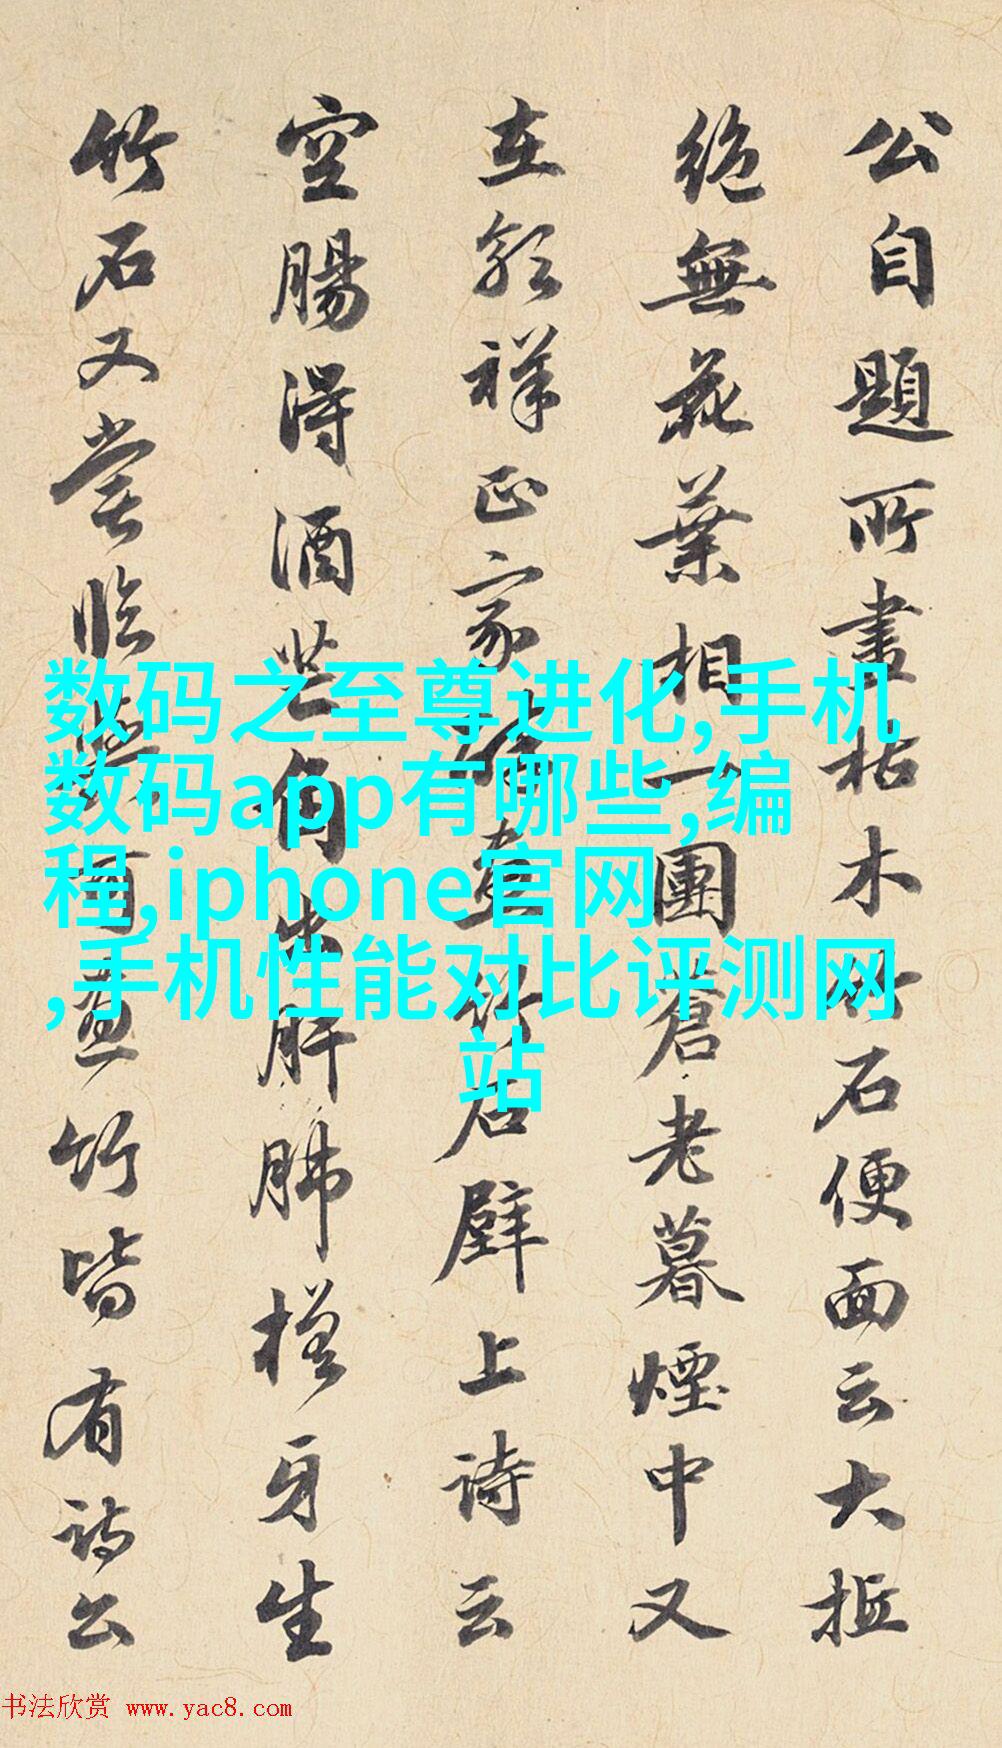 公自題所畫枯木竹石便面云大抵
絶無花葉相一團蒼老暮煙中又
在郭祥正家醉畫竹石壁上詩云
空腸得酒芒角出肝肺槎牙生
竹石又嘗臨與可畫竹皆有詩公
数码之至尊进化,手机
数码app有哪些,编
程,iphone官网
,手机性能对比评测网
站
书法欣赏 www.yac8.com